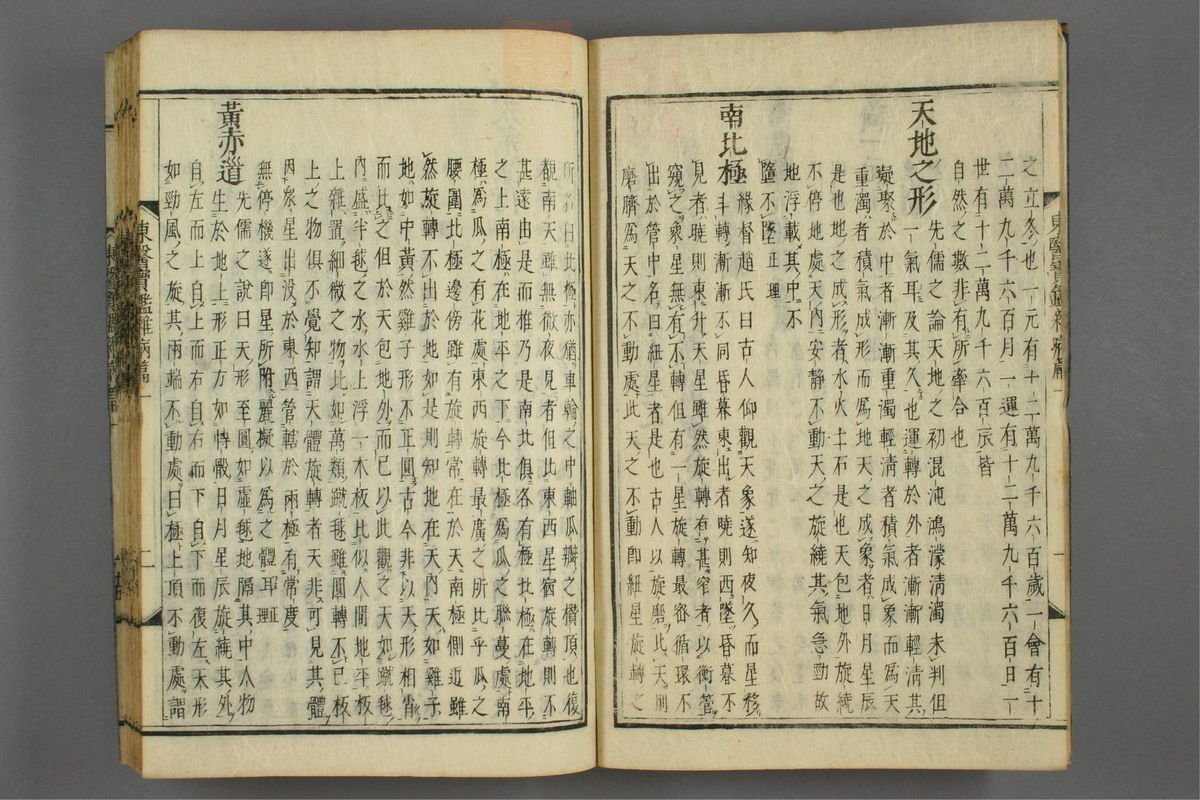 之立冬也一元有十二萬九千六百歲一會有十
二萬九千六百月一運有十二萬九千六百日一
世有十二萬九千六百辰皆
自然之數非有所牽合也
天地之形
先儒之論天地之初混沌鴻濛淸濁未判但
一氣耳及其久也運轉於外者漸漸輕淸其
凝聚於中者漸漸重濁輕淸者積氣成象而爲天
重濁者積氣成形而爲地天之成象者日月星辰
是也地之成形者水火土石是也天包地外旋繞
不停地處天內安靜不動天之旋繞其氣急勁故
地浮載其中不
墮不墜正理
南北極
緣督趙氏曰古人仰觀天象遂知夜久而星移
斗轉漸漸不同昏暮東出者曉則西墜昏暮不
見者曉則東升天星雖然旋轉有甚窄者以衡管
窺之衆星無有不轉但有一星旋轉最密循環不
出於管中名曰紐星者是也古人以旋磨比天則
磨臍爲天之不動處此天之不動卽紐星旋轉之
所名曰北極亦猶車輪之中軸瓜瓣之攢頂也復
觀南天雖無徹夜見者但比東西星宿旋轉則不
甚遠由是而推乃是南北俱各有極北極在地平
之上南極在地平之下今北極爲瓜之聯蔓處南
極爲瓜之有花處東西旋轉最廣之所比乎瓜之
腰圍北極邊傍雖有旋轉常在於天南極側近雖
然旋轉不出於地如是則知地在天內天如雞子
地如中黃然雞子形不正圓古今非以天形相肖
而比之但於天包地外而已以此觀之天如蹴毬
內盛半毬之水水上浮一木板比似人間地平板
上雜置細微之物比如萬類蹴毬雖圓轉不已板
上之物俱不覺知謂天體旋轉者天非可見其體
因衆星出沒於東西管轄於兩極有常度
無停機遂卽星所附麗擬以爲之體耳正理
黃赤道
先儒之說曰天形至圓如虛毬地隔其中人物
生於地上形正方如博骰日月星辰旋繞其外
自左而上自上而右自右而下自下而復左天形
如勁風之旋其兩端不動處曰極上頂不動處謂
東醫寶鑑雜病篇一
一
東醫寶鑑雜病篇一
二